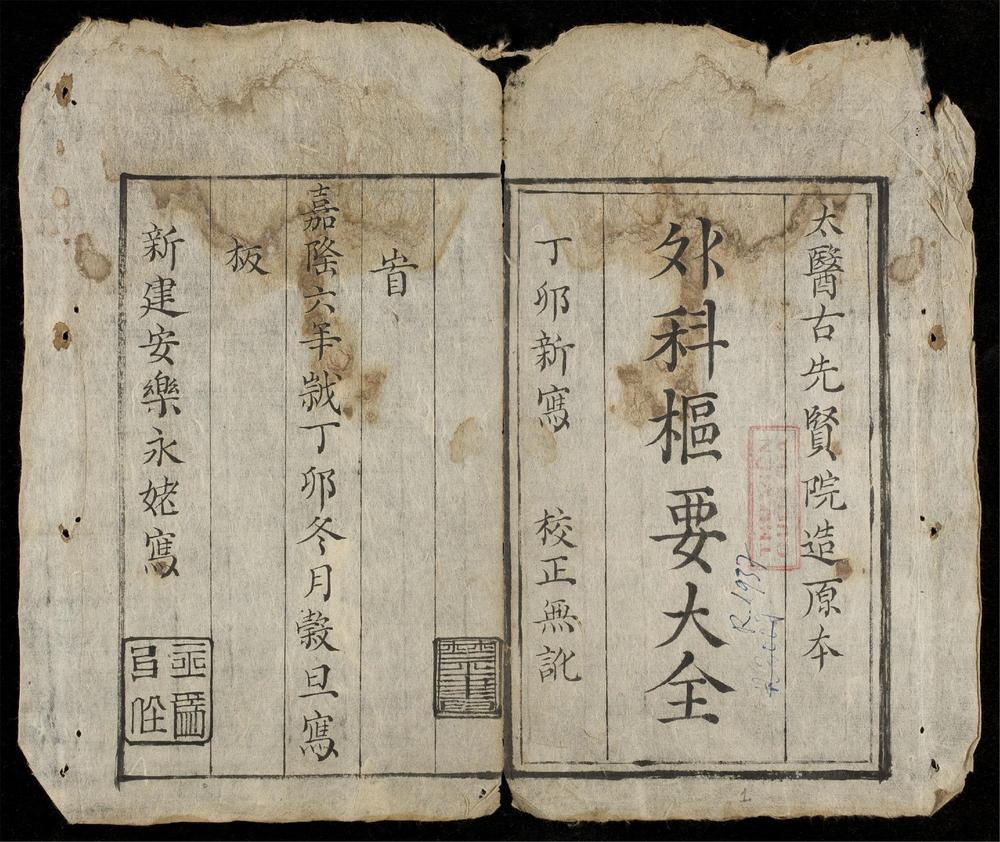 太醫古先賢院造原本
外科樞要大全
丁卯新寫 校正無訛
R.1937
1
嘉隆六年歲丁卯冬月穀旦寫
板
新建安樂永姥寫